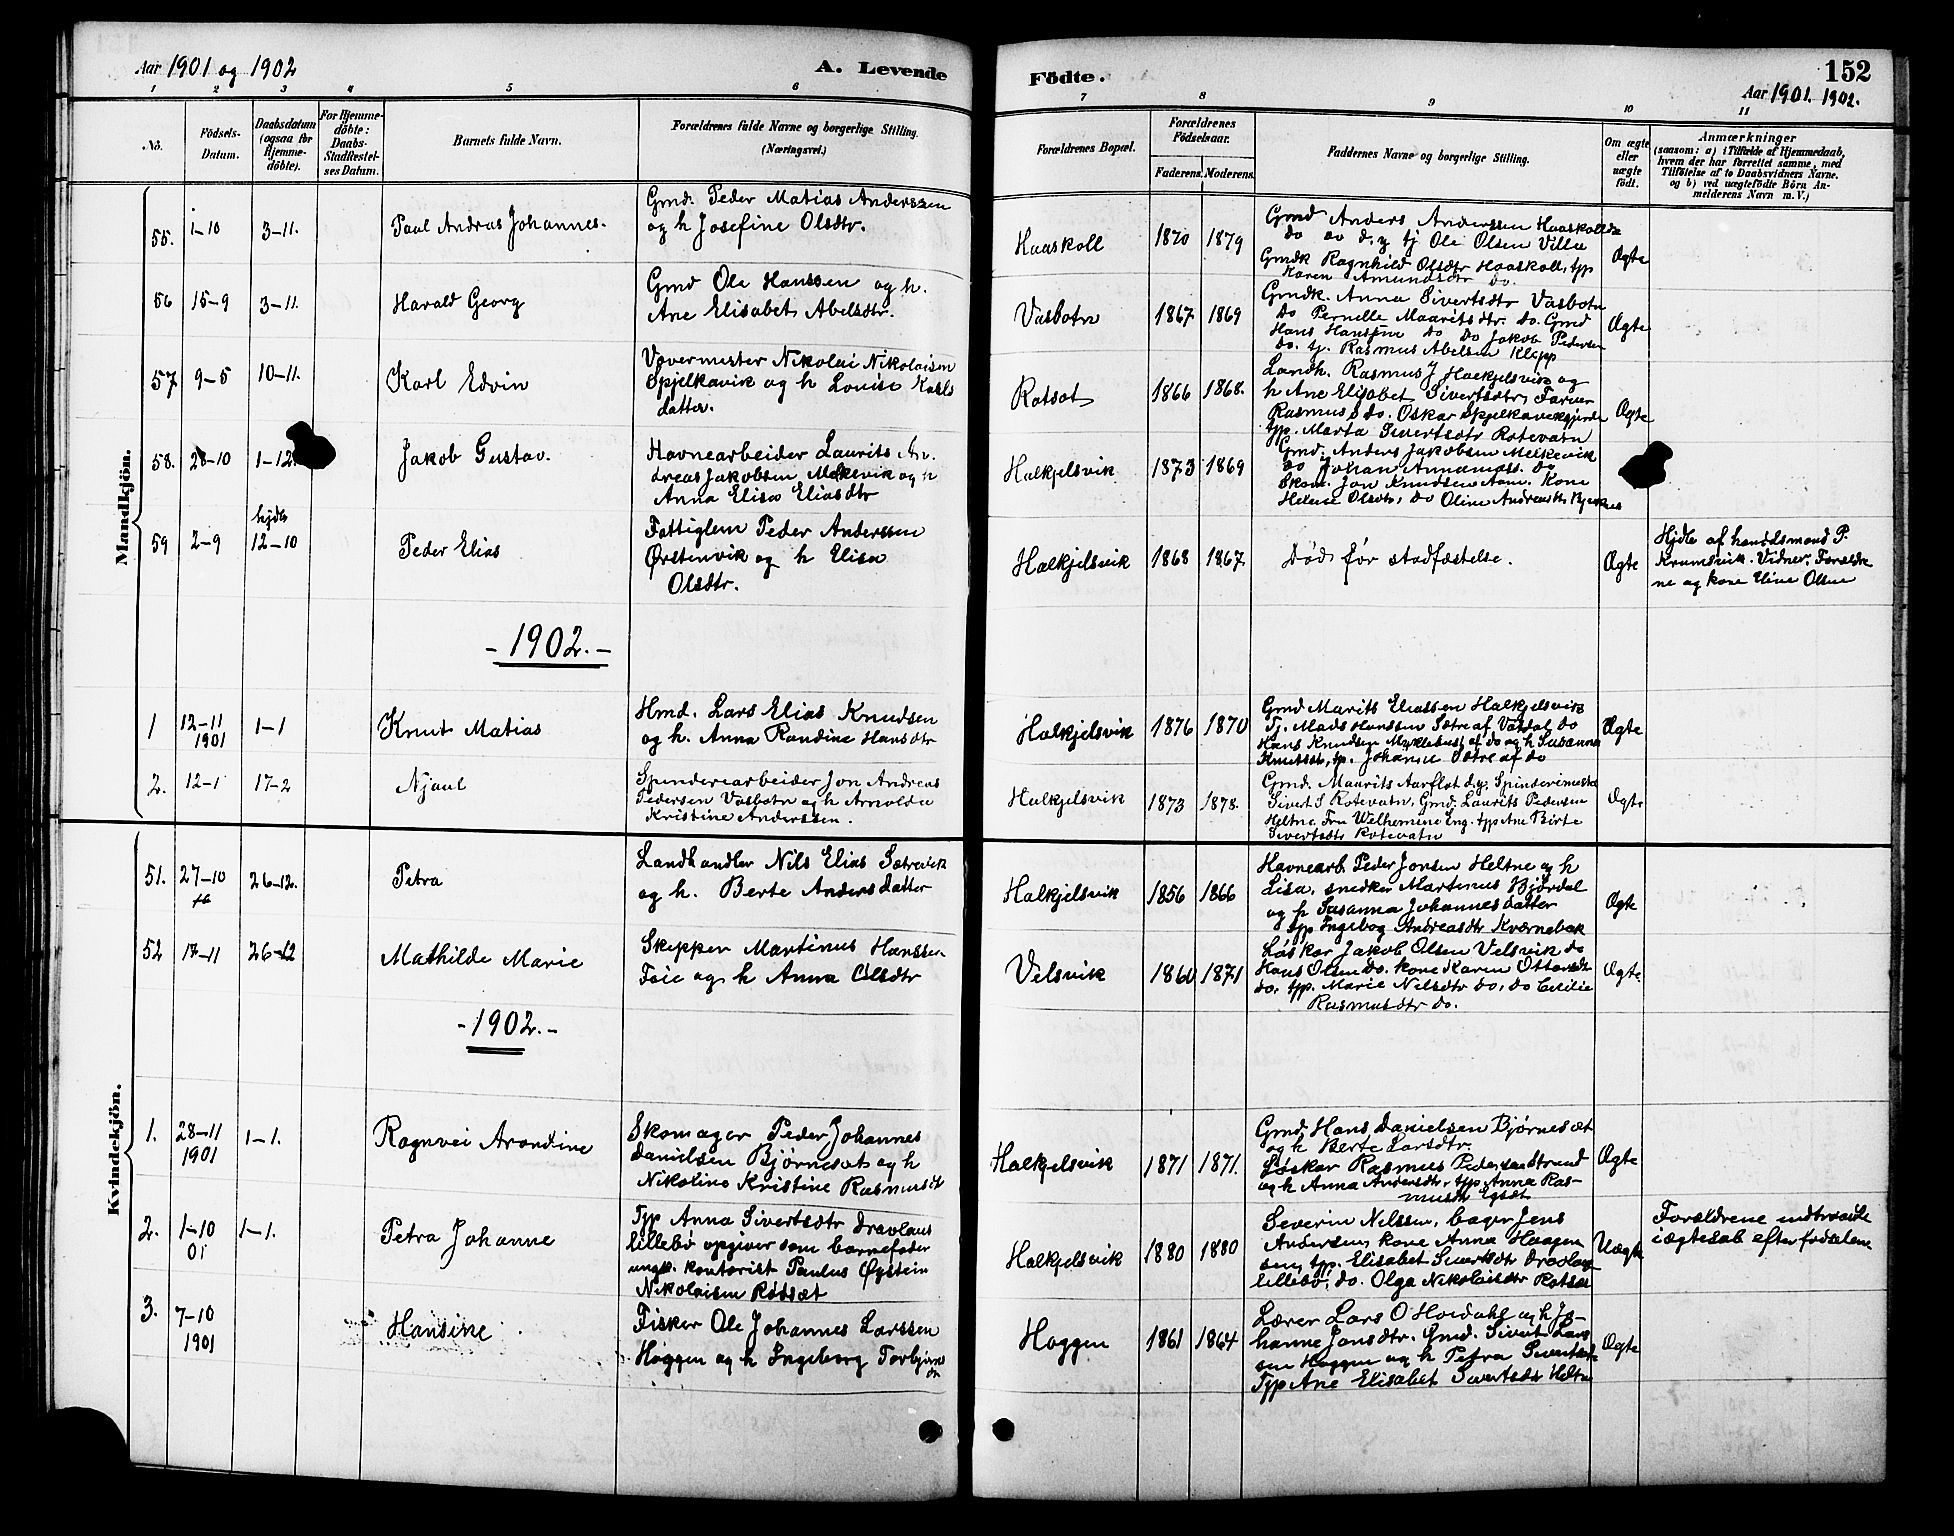 Aar 1901 og 1902
A. Levende
Födte.
152
Aar 1901. 1902.
1 2 3 4 5 6 7 8 9 10 11
No.
Födsels-
Datum.
Daabsdatum
(ogsaa for
Hjemme-
döbte).
For Hjemme-
döbte:
Daabs-
Stadfæstel-
ses Datum.
Barnets fulde Navn.
Forældrenes fulde Navne og borgerlige Stilling.
(Næringsvei.)
Forældrenes Bopæl.
Forældrenes
Födselsaar.
Faderens. Moderens.
Faddernes Navne og borgerlige Stilling.
Om ægte
eller
uægte
födt.
Anmærkninger
(saasom: a) i Tilfælde af Hjemmedaab,
hvem der har forrettet samme, med
Tilföielse af to Daabsvidners Navne,
og b) ved uægtefödte Börn An-
melderens Navn m. V.)
Mandkjön.
55. 1-10 3-11. Paul Andreas Johannes.
Gmd. Peder Matias Anderssen
og h Josefine Olsdtr.
Haaskoll 1870 1879
Gmd Anders Anderssen Haaskoll
do av d.y tj Ole Olsen Villa
Gmdk Ragnhild Olsdtr Haaskoll, tjp
Karen Amundsdtr do.
Ægte
56 15-9 3-11. Harald Georg
Gmd Ole Hanssen og h.
Ane Elisabet Abelsdtr.
Vasbotn 1867 1869
Gmdk. Anna Sivertsdtr Vasbotn
do Pernelle Maaritsdtr. do. Gmd
Hans Hanssen do do Jakob Pedersen
do. tj. Rasmus Abelsen Klepp
Ægte
57 9-5 10-11. Karl Edvin
Vævermester Nikolai Nikolaisen
Spjelkavik og h Louise Karls
datter.
Rotsæt 1866 1868.
Landh. Rasmus J Halkjelsvik og
h Ane Elisabet Sivertsdtr, Farver
Rasmus do. Oskar Spjelkavikgjerde
tjp. Marta Sivertsdtr Rotevatn
Ægte
58. 28-10 1-12. Jakob Gustav.
Havnearbeider Laurits An-
dreas Jakobsen Melkevik og h
Anna Elisa Eliasdtr
Halkjelsvik 1873 1869
Gmd. Anders Jakobsen Melkevik
do Johan Annanias. do
Skom. Jon Knudsen Aam. Kone
Helene Olsdtr, do Oline Andreasdtr
59 2-9 hjdb 12-10 Peder Elias
Fattiglem Peder Anderssen
Ørstenvik og h Elisa
Olsdtr.
Halkjelsvik 1868 1867
Død før stadfæstelse.
Ægte
Hjdb af handelsmand P.
Krumsvik. Vidner: Forældre
ne og kone Eline Olsen
- 1902. -
1 12-11 1901 1-1 Knut Matias
Hmd. Lars Elias Knudsen
og h. Anna Randine Hansdtr
Halkjelsvik 1876 1870
Gmd Marits Eliassen Halkjelsvik
Tj. Mads Hanssen Sætre af Vartdal do
Hans Knudsen Myklebust af do og h Susanna
Knutsdtr, tp. Johanne Sætre af do
Ægte
2. 12-1 17-2 Njaal
Spinderearbeider Jon Andreas
Pedersen Vasbotn og h Arnolda
Kristine Anderssen.
Halkjelsvik 1873 1878.
Gmd. Maurits Aarflot d.y. Spinderimester
Sivert S Rotevatn, Gmd. Laurits Pedersen
Heltne Fru Welhemine Eng. tjp Ane Birte
Sivertsdtr Rotevatn
Ægte
Kvindekjön.
51. 27-10 26-12. Petra
Landhandler Nils Elias Sætrevik
og h. Berte Andersdatter
Halkjelsvik 1856 1866
Havnearb. Peder Jonsen Heltne og h
Lisa, snedker Martinus Hjørdal
og h Susanna Johannesdatter
tjp Ingebog Andreasdtr Kvernebak
Ægte
52 17-11 26-12 Mathilde Marie
Skipper Martinus Hanssen
Foie og h Anna Olsdtr
Velsvik 1860 1871
Løskar Jakob Olsen Velsvik do
Hans Olsen do. kone Karen Ottarsdtr
do, tjp. Marie Nilsdtr do, do Cecilie
Rasmusdtr do.
Ægte
- 1902. -
1. 28-11 1901 1-1. Ragnvei Arondine
Skomager Peder Johannes
Danielsen Bjørnesæt og h
Nikoline Kristine Rasmusdt
Halkjelsvik 1871 1871.
Gmd. Hans Danielsen Bjørnesæt
og h Berte Larsdtr
Løskar Rasmus Pedersen Strand
og h Anna Andersdtr, tjp Anna Ras-
musdtr Egsæt
Ægte
2. 1-10 01 1-1. Petra Johanne
Tjp Anna Sivertsdtr Dravlaus
lillebø opgiver som barnefader
ungk. kontorist Paulus Øystein
Nikolaisen Rotsæt
Halkjelsvik 1880 1880
Severin Nilssen, bager Jens
Andersen, kone Anna Haagen
sen, tjp. Elisabet Sivertsdtr Dravlaus
lillebø, do. Olga Nikolaisdtr Rotsæt
Uægte
Forældrene indtraadte
i ægtesab efter fødselen
3. 7-10 1901 Hansine
Fisker Ole Johannes Larssen
Hoggen og h Ingeborg Torbjørns
dtr
Hoggen 1861 1864
Lærer Lars O Hovdahl og h Jo-
hanne Jonsdtr. Gmd. Sivert Lars
sen Hoggen og h Petra Sivertsdtr
Tjp Ane Elisabet Sivertsdtr Heltne
Ægte